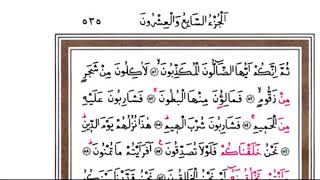 اَلْجُزْءُ السَّابِعُ وَالْعِشْرُونَ ٥٣٥
ثُمَّ اِنَّكُمْ اَيُّهَا الضَّٓالُّونَ الْمُكَذِّبُونَۙ ﴿٥١﴾ لَاٰكِلُونَ مِنْ شَجَرٍ
مِنْ زَقُّومٍۙ ﴿٥٢﴾ فَمَالِؤُنَ مِنْهَا الْبُطُونَۚ ﴿٥٣﴾ فَشَارِبُونَ عَلَيْهِ
مِنَ الْحَمِيمِۚ ﴿٥٤﴾ فَشَارِبُونَ شُرْبَ الْهِيمِۜ ﴿٥٥﴾ هٰذَا نُزُلُهُمْ يَوْمَ الدِّينِۜ ﴿٥٦﴾
نَحْنُ خَلَقْنَاكُمْ فَلَوْلَا تُصَدِّقُونَ ﴿٥٧﴾ اَفَرَاَيْتُمْ مَا تُمْنُونَۜ ﴿٥٨﴾
ءَاَنْتُمْ تَخْلُقُونَهُٓ اَمْ نَحْنُ الْخَالِقُونَ ﴿٥٩﴾ نَحْنُ قَدَّرْنَا بَيْنَكُمُ